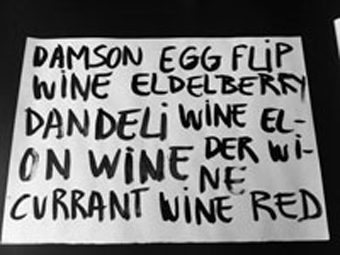 DAMSON EGG FLIP
WINE ELDELBERRY
DANDELI WINE EL-
ON WINE DER WI-
NE
CURRANT WINE RED